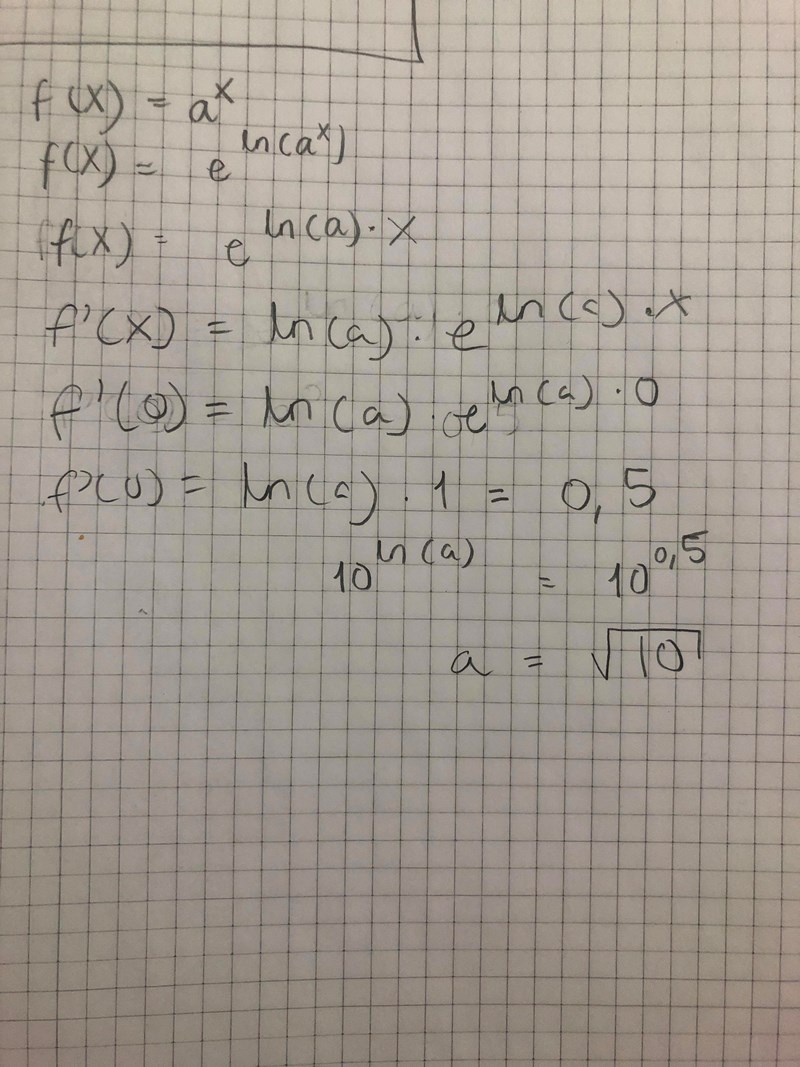 f(x) = a^x
f(x) = e^ln(a^x)
f(x) = e^ln(a)·x
f'(x) = ln(a) · e^ln(a)·x
f'(0) = ln(a) · e^ln(a)·0
f'(0) = ln(a) · 1 = 0,5
10^ln(a) = 10^0,5
a = √10